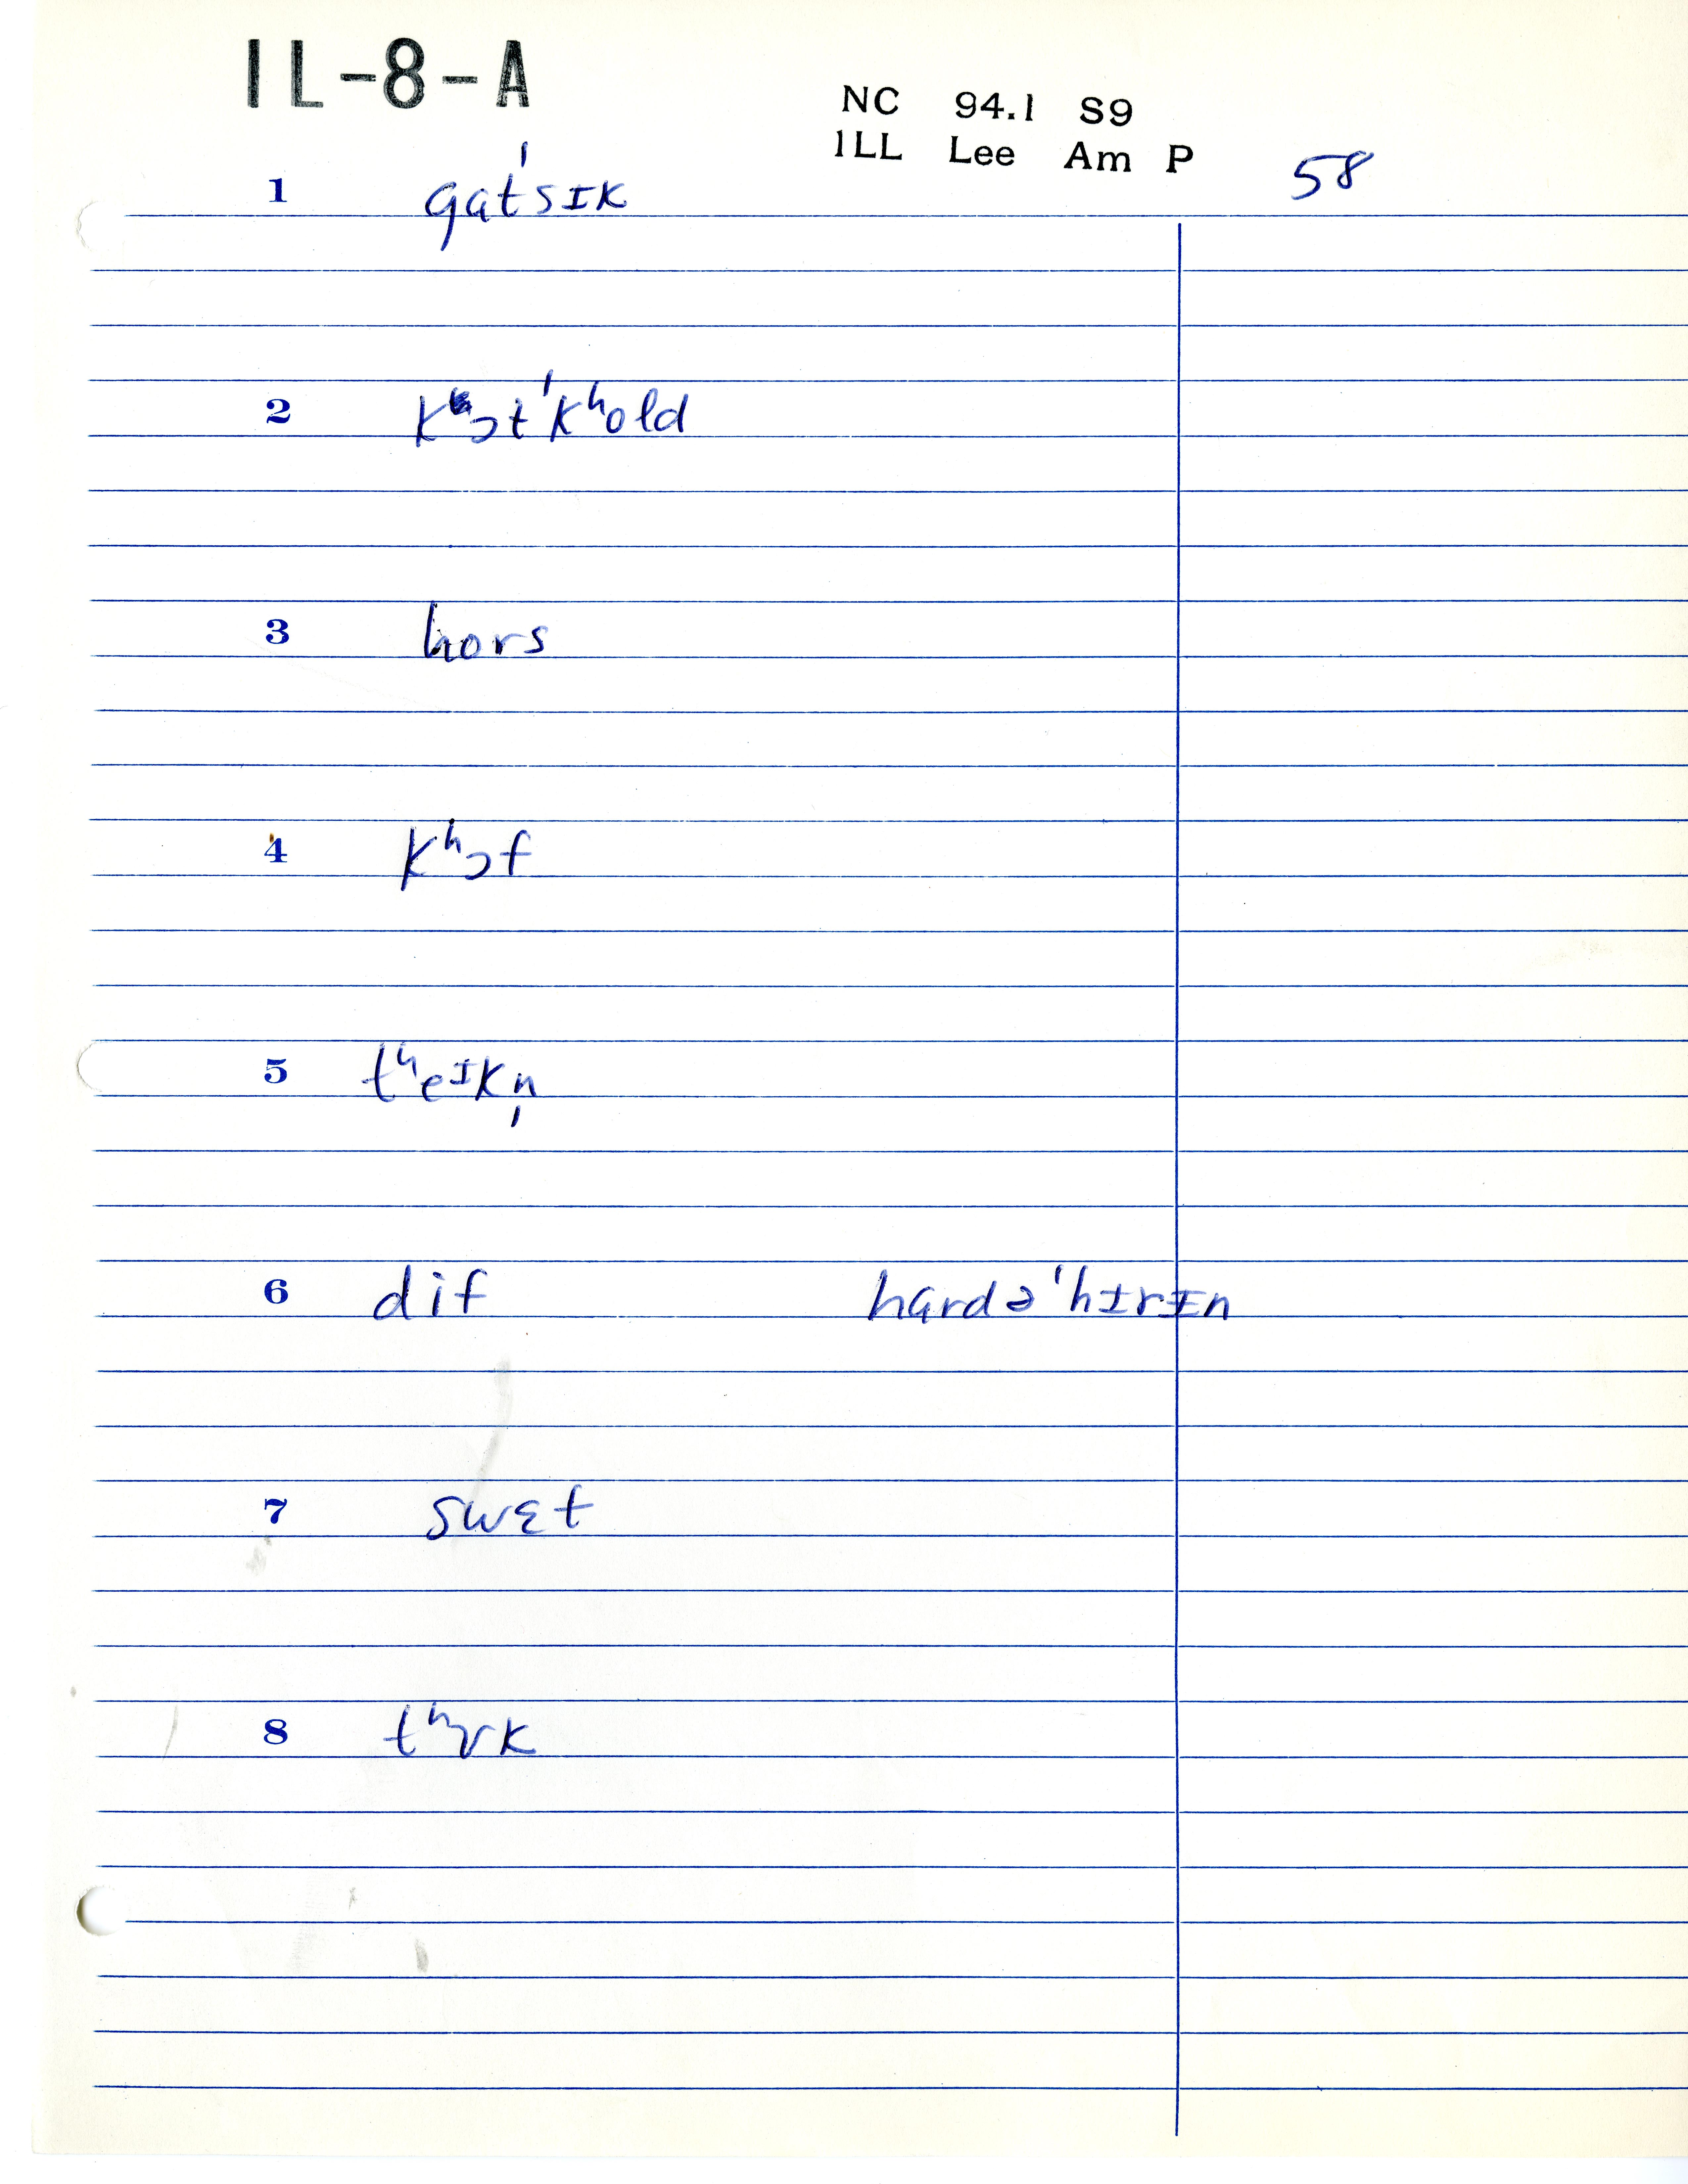 IL-8-A
NC 94.1 S9
ILL Lee Am P 58
1 gatˈsɪk
2 kʰɔtˈkʰold
3 hors
4 kʰɔf
5 tʰeɪkn̩
6 dif hardəˈhɪrɪn
7 swɛt
8 tʰʊk